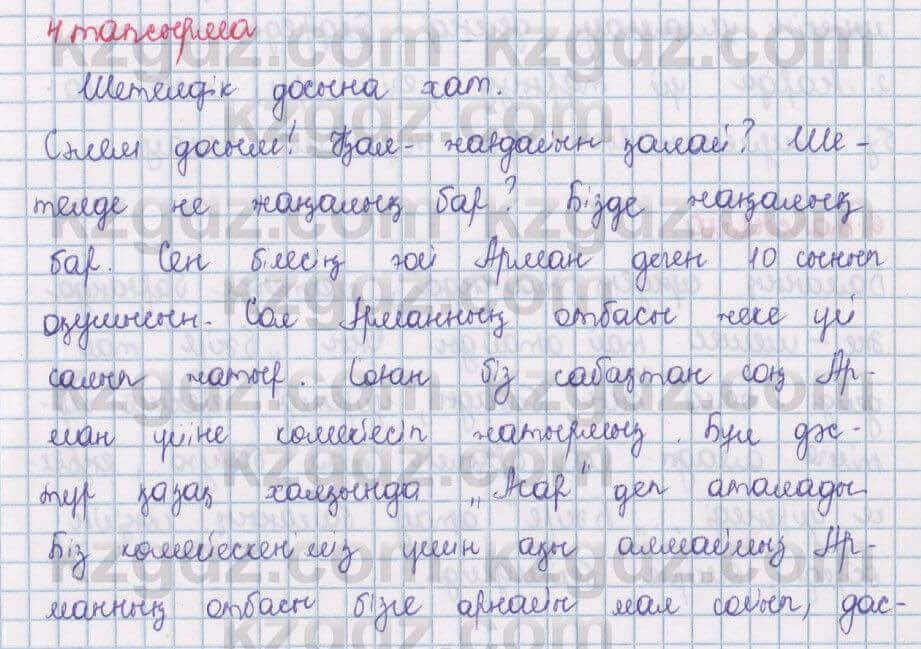 4 тапсырма
Шетелдік досыңа хат.
Сәлем досым! Қал-жағдайың қалай? Ше-
телде не жаңалық бар? Бізде жаңалық
бар. Сен білесің ғой Арман деген 10 сынып
оқушысын. Сол Арманның отбасы жеке үй
салып жатыр. Соған біз сабақтан соң Ар-
ман үйіне көмектесіп жатырмыз. Бұл дәс-
түр қазақ халқында „Асар" деп аталады
Біз көмектескеніміз үшін ақы алмаймыз Ар-
манның отбасы бізге арнайы мал сойып, дас-
kzgdz.com